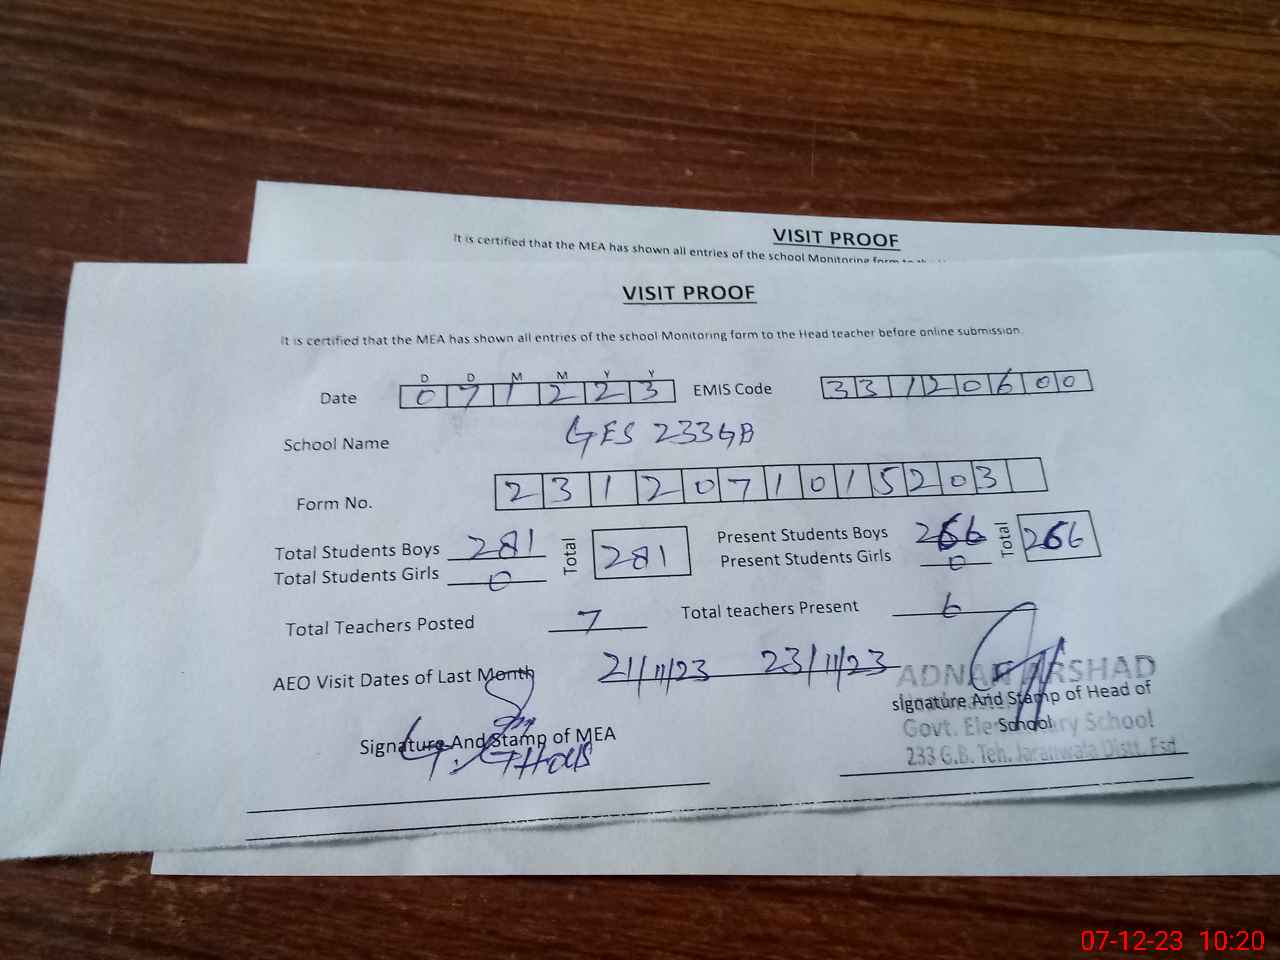 VISIT PROOF
It is certified that the MEA has shown all entries of the school Monitoring form to the
VISIT PROOF
It is certified that the MEA has shown all entries of the school Monitoring form to the Head teacher before online submission.
D D M M Y Y
Date 071223 EMIS Code 33120600
School Name GES 233GB
Form No. 2312071015203
Total Students Boys 281 Total 281 Present Students Boys 266 Total 266
Total Students Girls 0 Present Students Girls 0
Total Teachers Posted 7 Total teachers Present 6
AEO Visit Dates of Last Month 21/11/23 23/11/23 ADNAN ARSHAD
signature And Stamp of Head of
Signature And Stamp of MEA School
Govt. Elementary School
233 G.B. Teh. Jaranwala Distt. Fsd
07-12-23 10:20